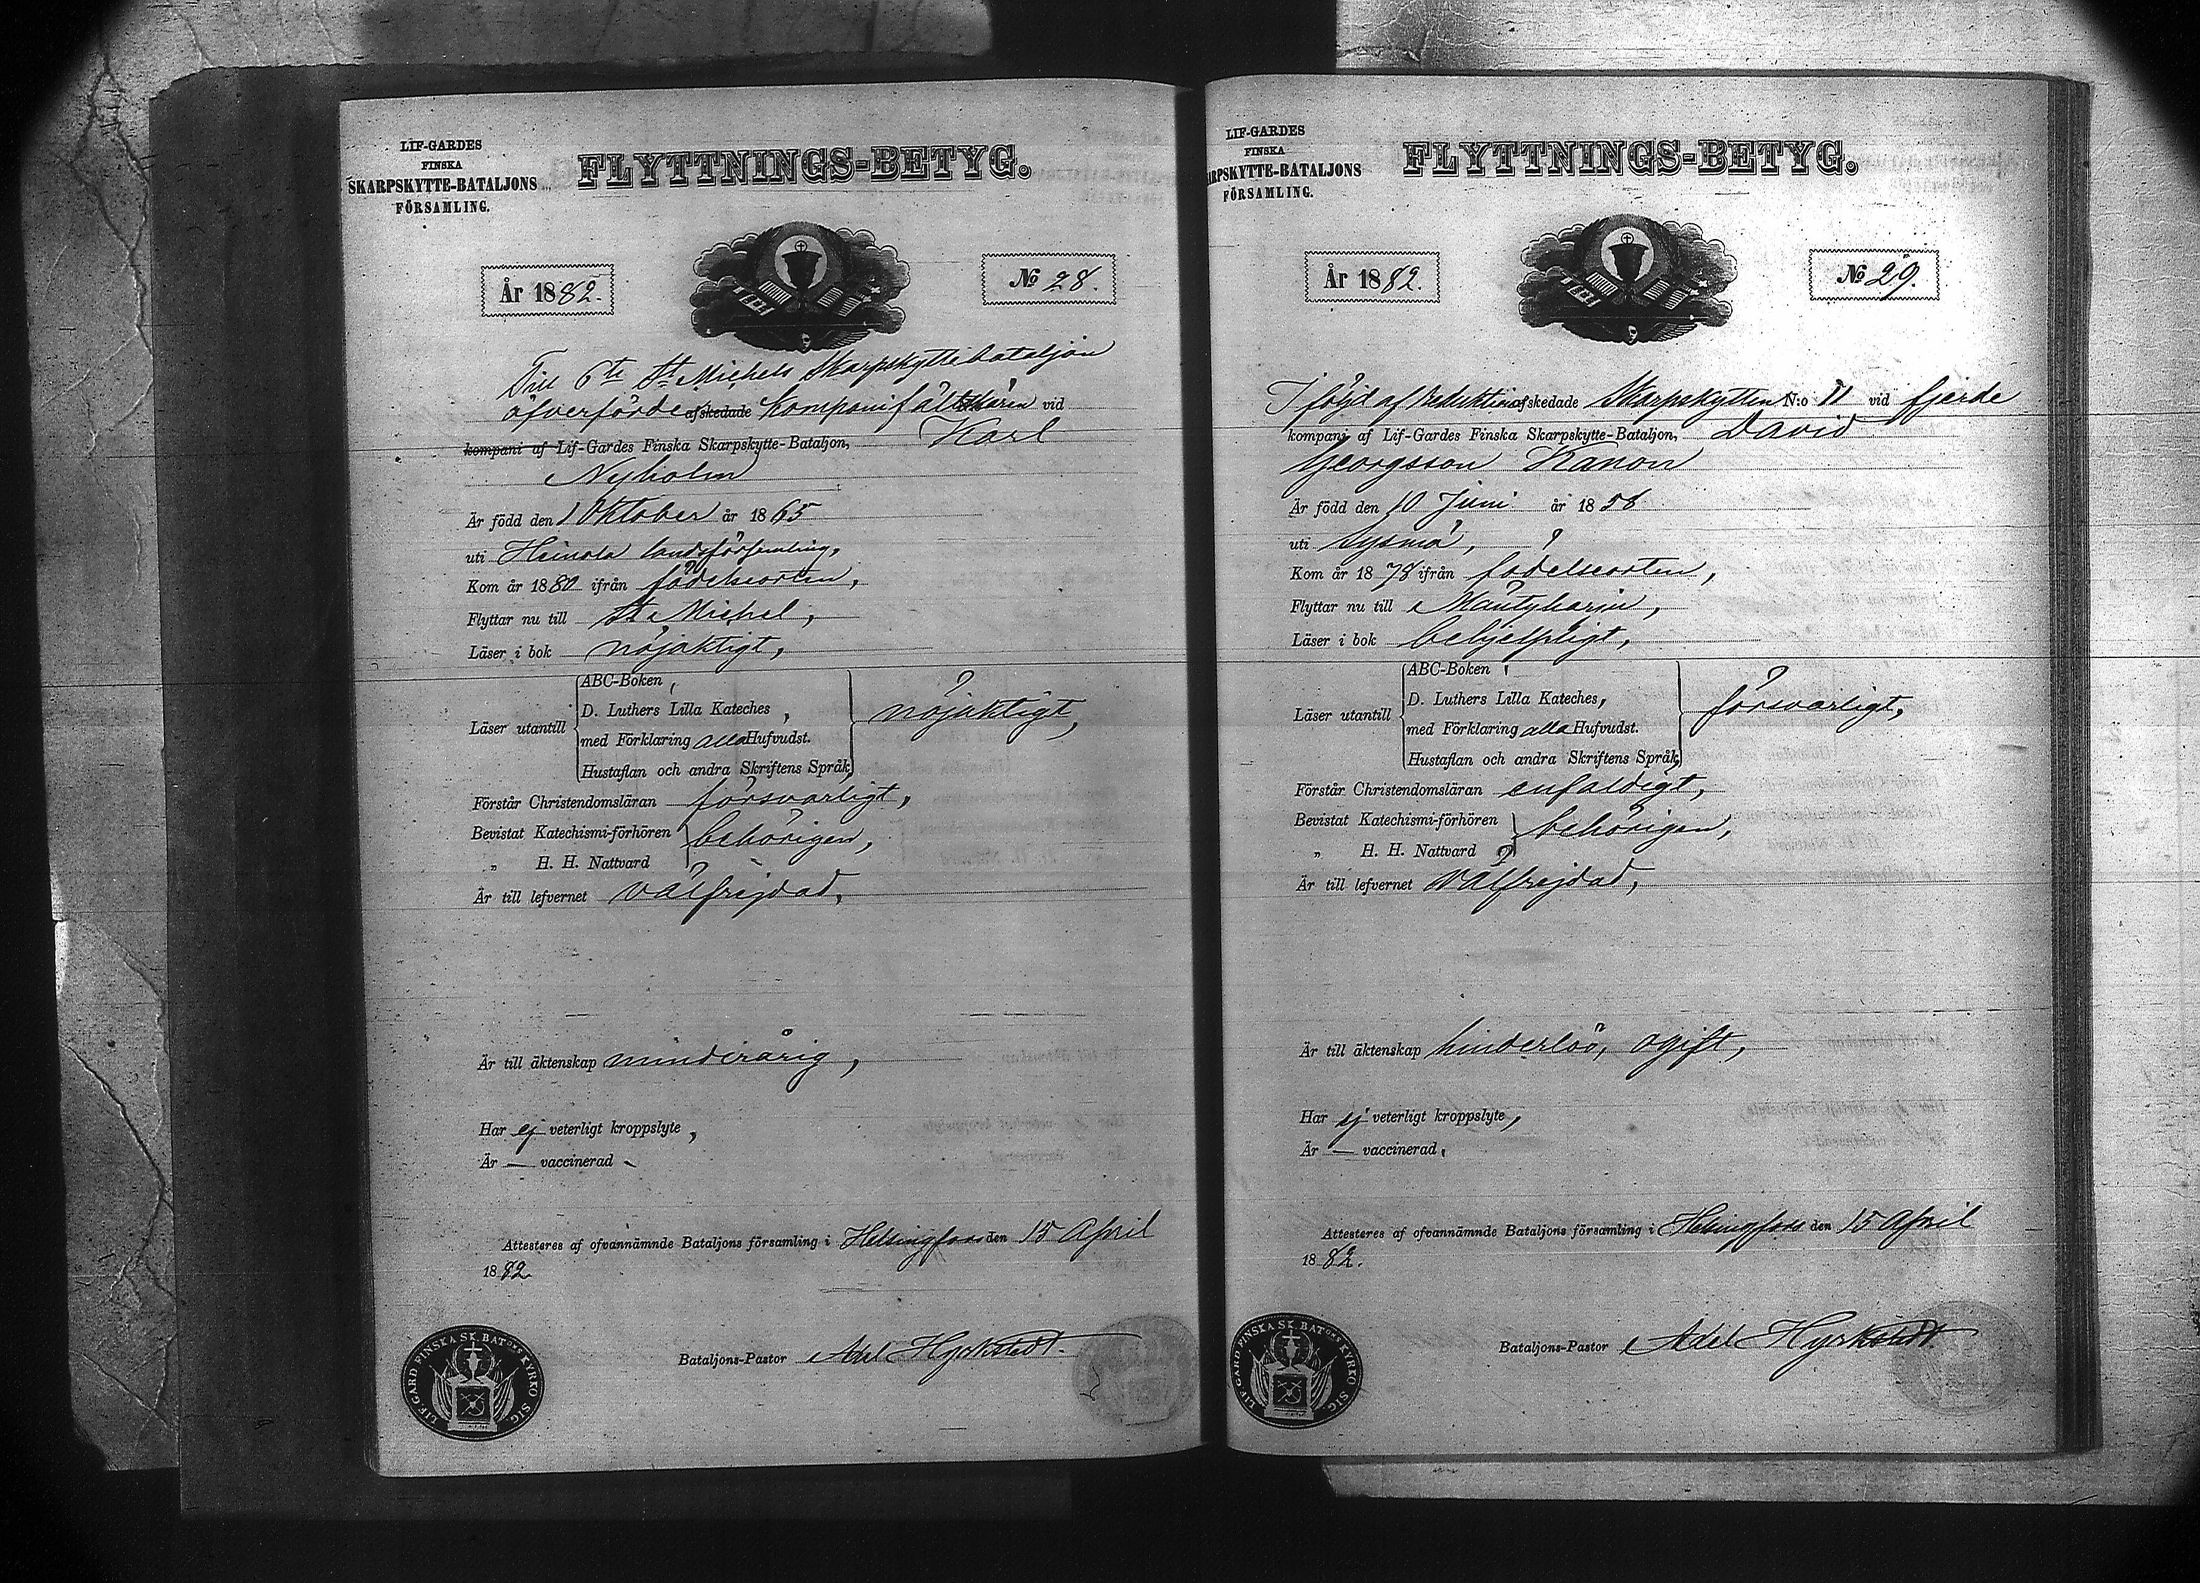 LIF-GARDES
FINSKA
SKARPSKYTTE-BATALJONS
FÖRSAMLING.
FLYTTNINGS-BETYG.
År 1882.
No 28.
Till 6te St Michels Skarpskyttebataljon
öfverförde afskedade Kompanifältskären vid
kompani af Lif-Gardes Finska Skarpskytte-Bataljon, Karl
Nyholm
Är född den 1 Oktober år 1865
uti Heinola landsförsamling,
Kom år 1880 ifrån födelseorten,
Flyttar nu till St Michel,
Läser i bok nöjaktigt,
Läser utantill
ABC-Boken,
D. Luthers Lilla Kateches,
med Förklaring alla Hufvudst.
Hustaflan och andra Skriftens Språk,
nöjaktigt,
Förstår Christendomsläran försvarligt,
Bevistat Katechismi-förhören
„ H. H. Nattvard
behörigen,
Är till lefvernet välfrejdad,
Är till äktenskap minderårig,
Har ej veterligt kroppslyte,
Är — vaccinerad
Attesteras af ofvannämnde Bataljons församling i Helsingfors den 15 April
1882.
Bataljons-Pastor Axel Hyrkstedt.
LIF-GARD FINSKA SK. BATONS KYRKO SIG.
LIF-GARDES
FINSKA
ARPSKYTTE-BATALJONS
FÖRSAMLING.
FLYTTNINGS-BETYG.
År 1882.
No 29.
I följd af reduktion afskedade Skarpskytten N:o 11 vid fjerde
kompani af Lif-Gardes Finska Skarpskytte-Bataljon, David
Georgsson Kanon
Är född den 10 Juni år 1858
uti Sysmä,
Kom år 1878 ifrån födelseorten,
Flyttar nu till Mäntyharju,
Läser i bok behjelpligt,
Läser utantill
ABC-Boken,
D. Luthers Lilla Kateches,
med Förklaring alla Hufvudst.
Hustaflan och andra Skriftens Språk,
försvarligt,
Förstår Christendomsläran enfaldigt,
Bevistat Katechismi-förhören
„ H. H. Nattvard
behörigen,
Är till lefvernet välfrejdad,
Är till äktenskap hinderlös, ogift,
Har ej veterligt kroppslyte,
Är — vaccinerad,
Attesteras af ofvannämnde Bataljons församling i Helsingfors den 15 April
1882.
Bataljons-Pastor Axel Hyrkstedt.
LIF-GARD FINSKA SK. BATONS KYRKO SIG.